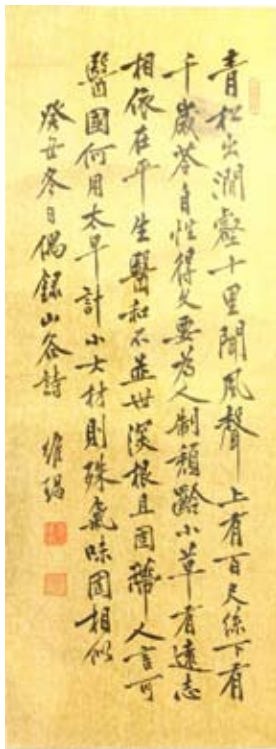 青松出澗壑十里聞風聲上有百尺絲下有
千歲苓自性得久要為人制頹齡小草有遠志
相依在平生醫和不並世深根且固蔕人言可
醫國何用太早計小大材則殊氣味固相似
癸丑冬日偶錄山谷詩 維